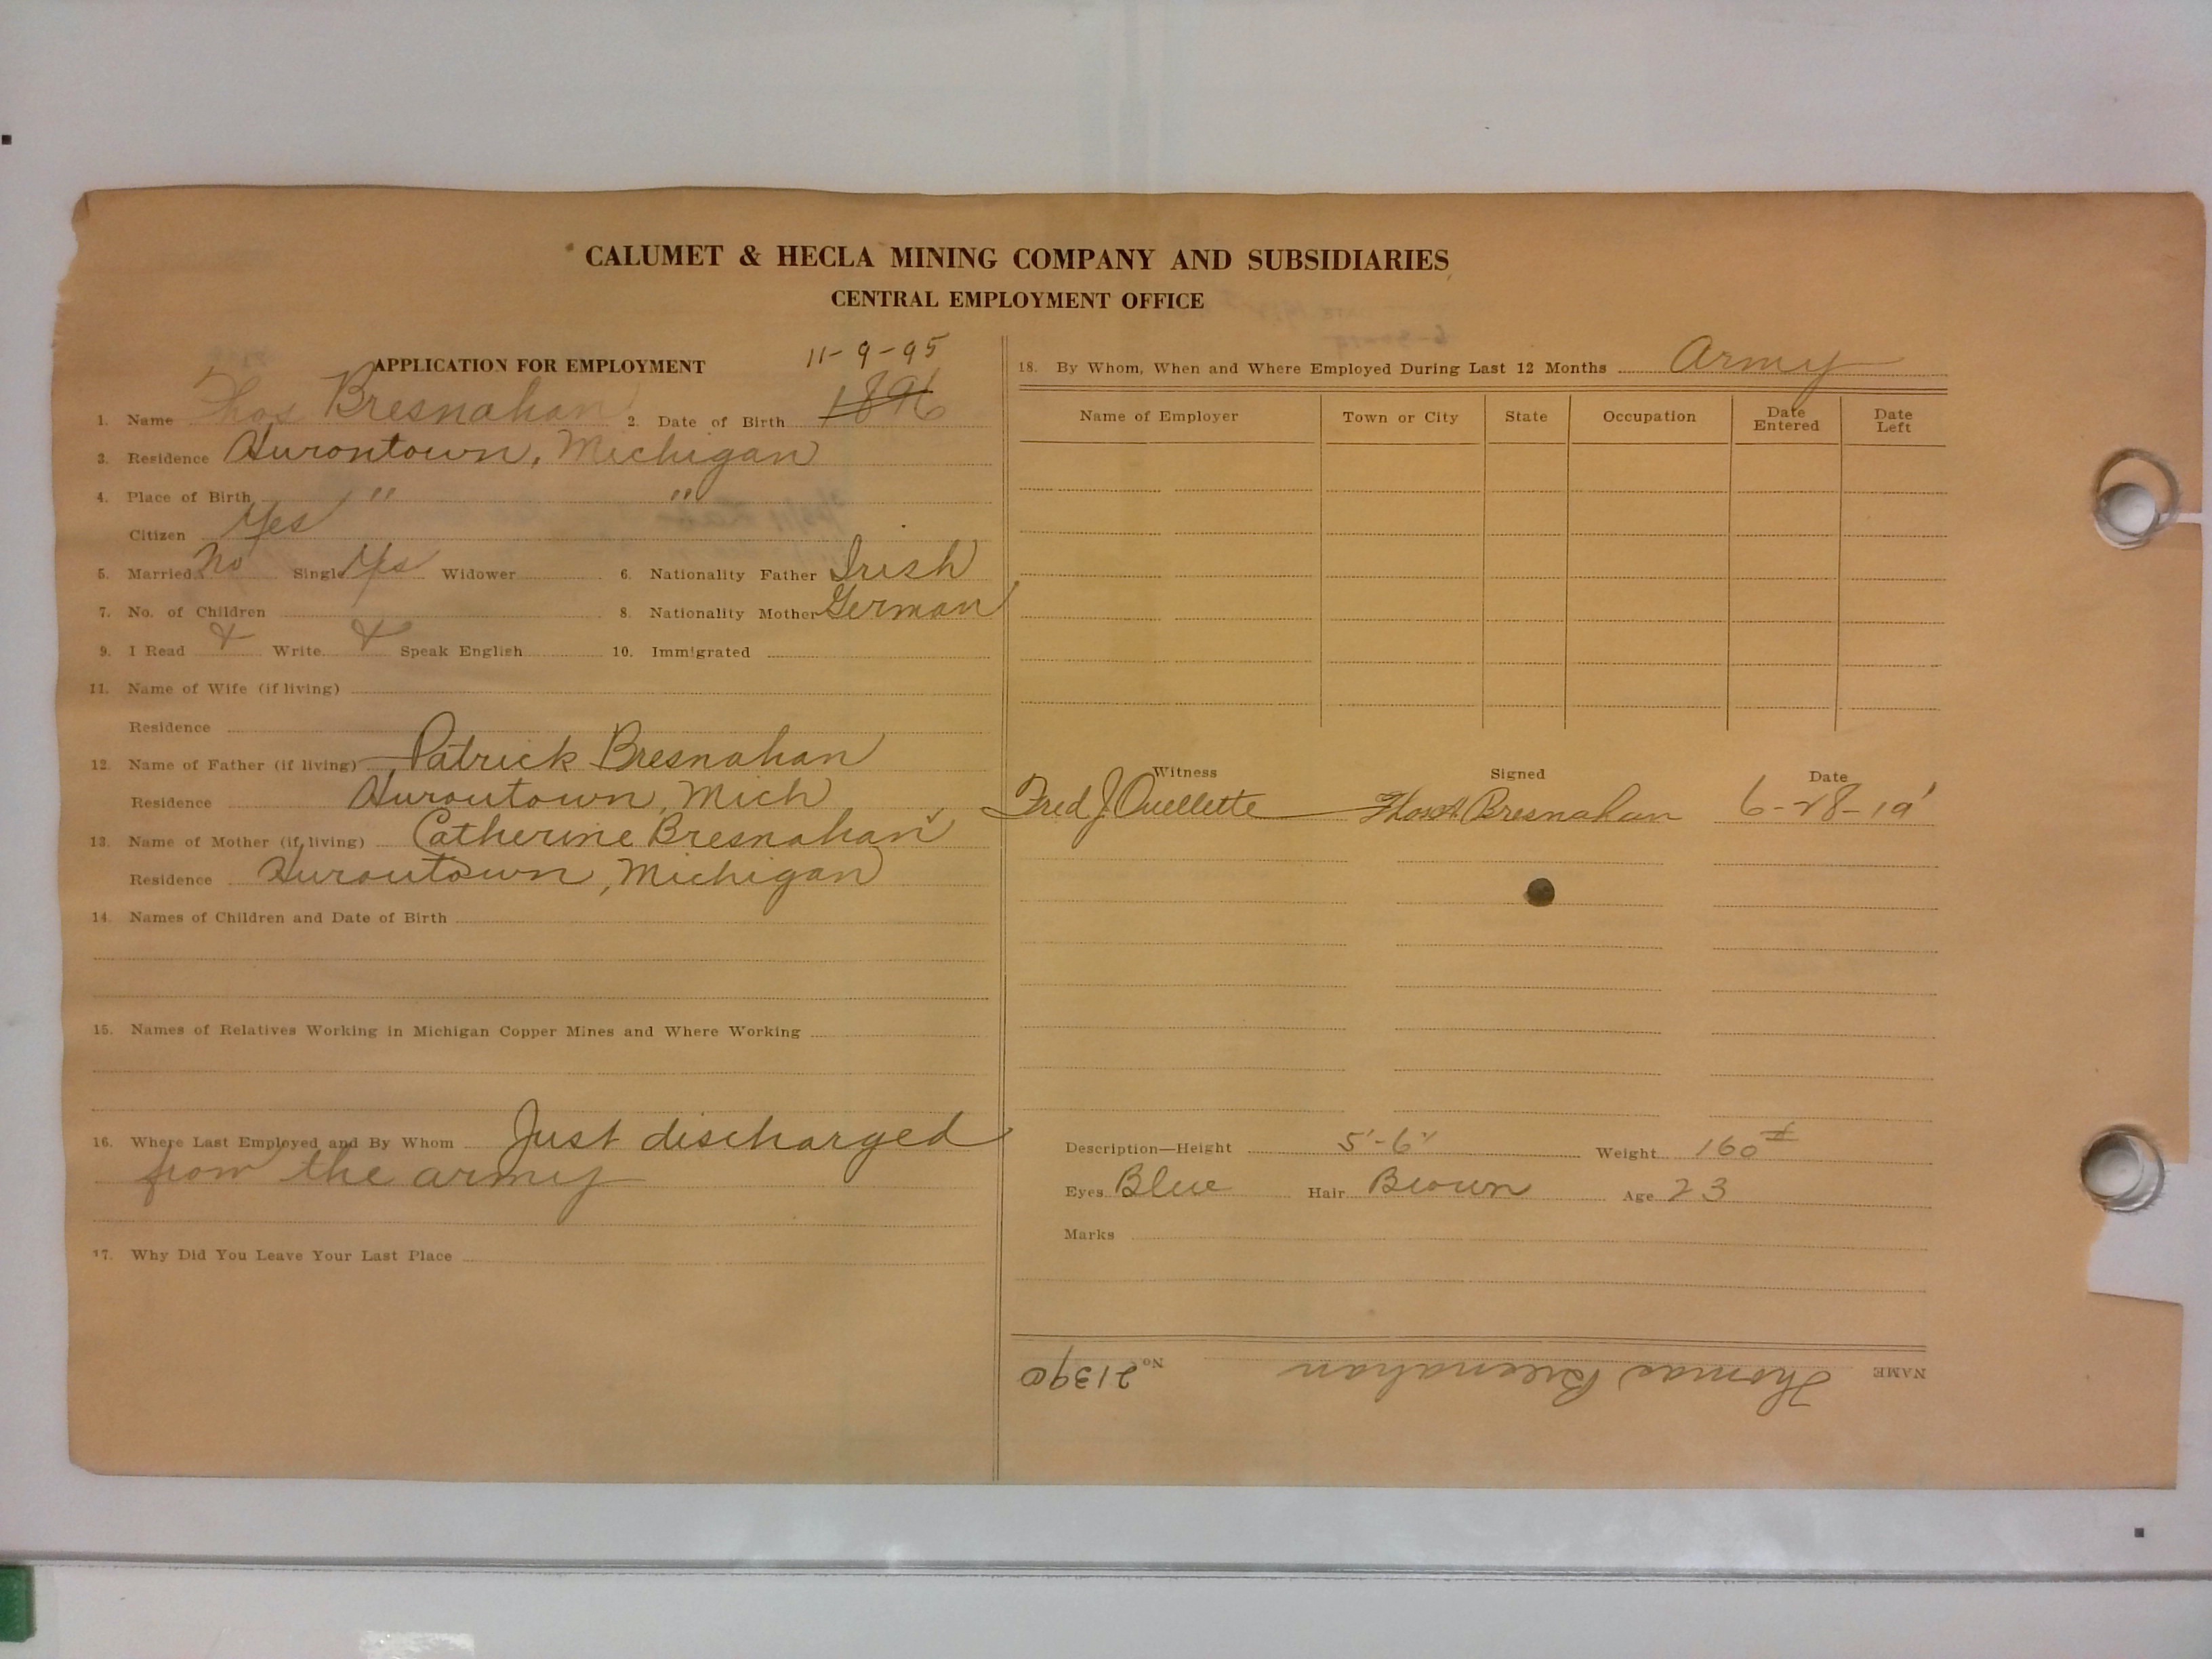 CALUMET & HECLA MINING COMPANY AND SUBSIDIARIES
CENTRAL EMPLOYMENT OFFICE
APPLICATION FOR EMPLOYMENT
11-9-95
1. Name Thos Bresnahan 2. Date of Birth 1896
3. Residence Hurontown, Michigan
4. Place of Birth " "
Citizen Yes
5. Married No Single Yes Widower 6. Nationality Father Irish
7. No. of Children 8. Nationality Mother German
9. I Read X Write X Speak English 10. Immigrated
11. Name of Wife (if living)
Residence
12. Name of Father (if living) Patrick Bresnahan
Residence Hurontown, Mich
13. Name of Mother (if living) Catherine Bresnahan
Residence Hurontown, Michigan
14. Names of Children and Date of Birth
15. Names of Relatives Working in Michigan Copper Mines and Where Working
16. Where Last Employed and By Whom Just discharged
from the army
17. Why Did You Leave Your Last Place
18. By Whom, When and Where Employed During Last 12 Months Army
Name of Employer Town or City State Occupation Date Entered Date Left
Witness Signed Date
Fred J Ouellette Thos Bresnahan 6-28-19'
Description—Height 5'-6" Weight 160#
Eyes Blue Hair Brown Age 23
Marks
NAME Thomas Bresnahan No. 21390